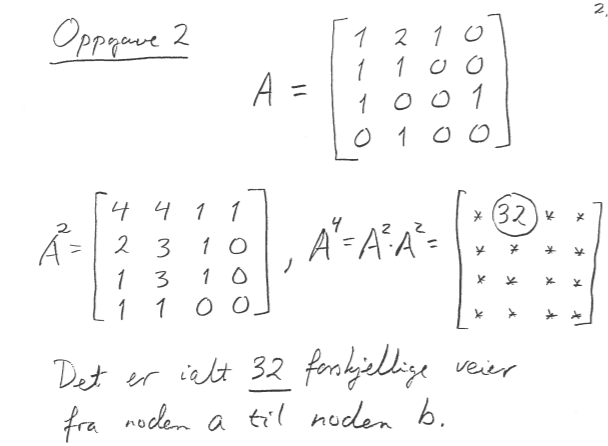 2.
Oppgave 2
A = [1 2 1 0
1 1 0 0
1 0 0 1
0 1 0 0]
A² = [4 4 1 1
2 3 1 0
1 3 1 0
1 1 0 0] , A⁴ = A²·A² = [* 32 * *
* * * *
* * * *
* * * *]
Det er ialt 32 forskjellige veier
fra noden a til noden b.